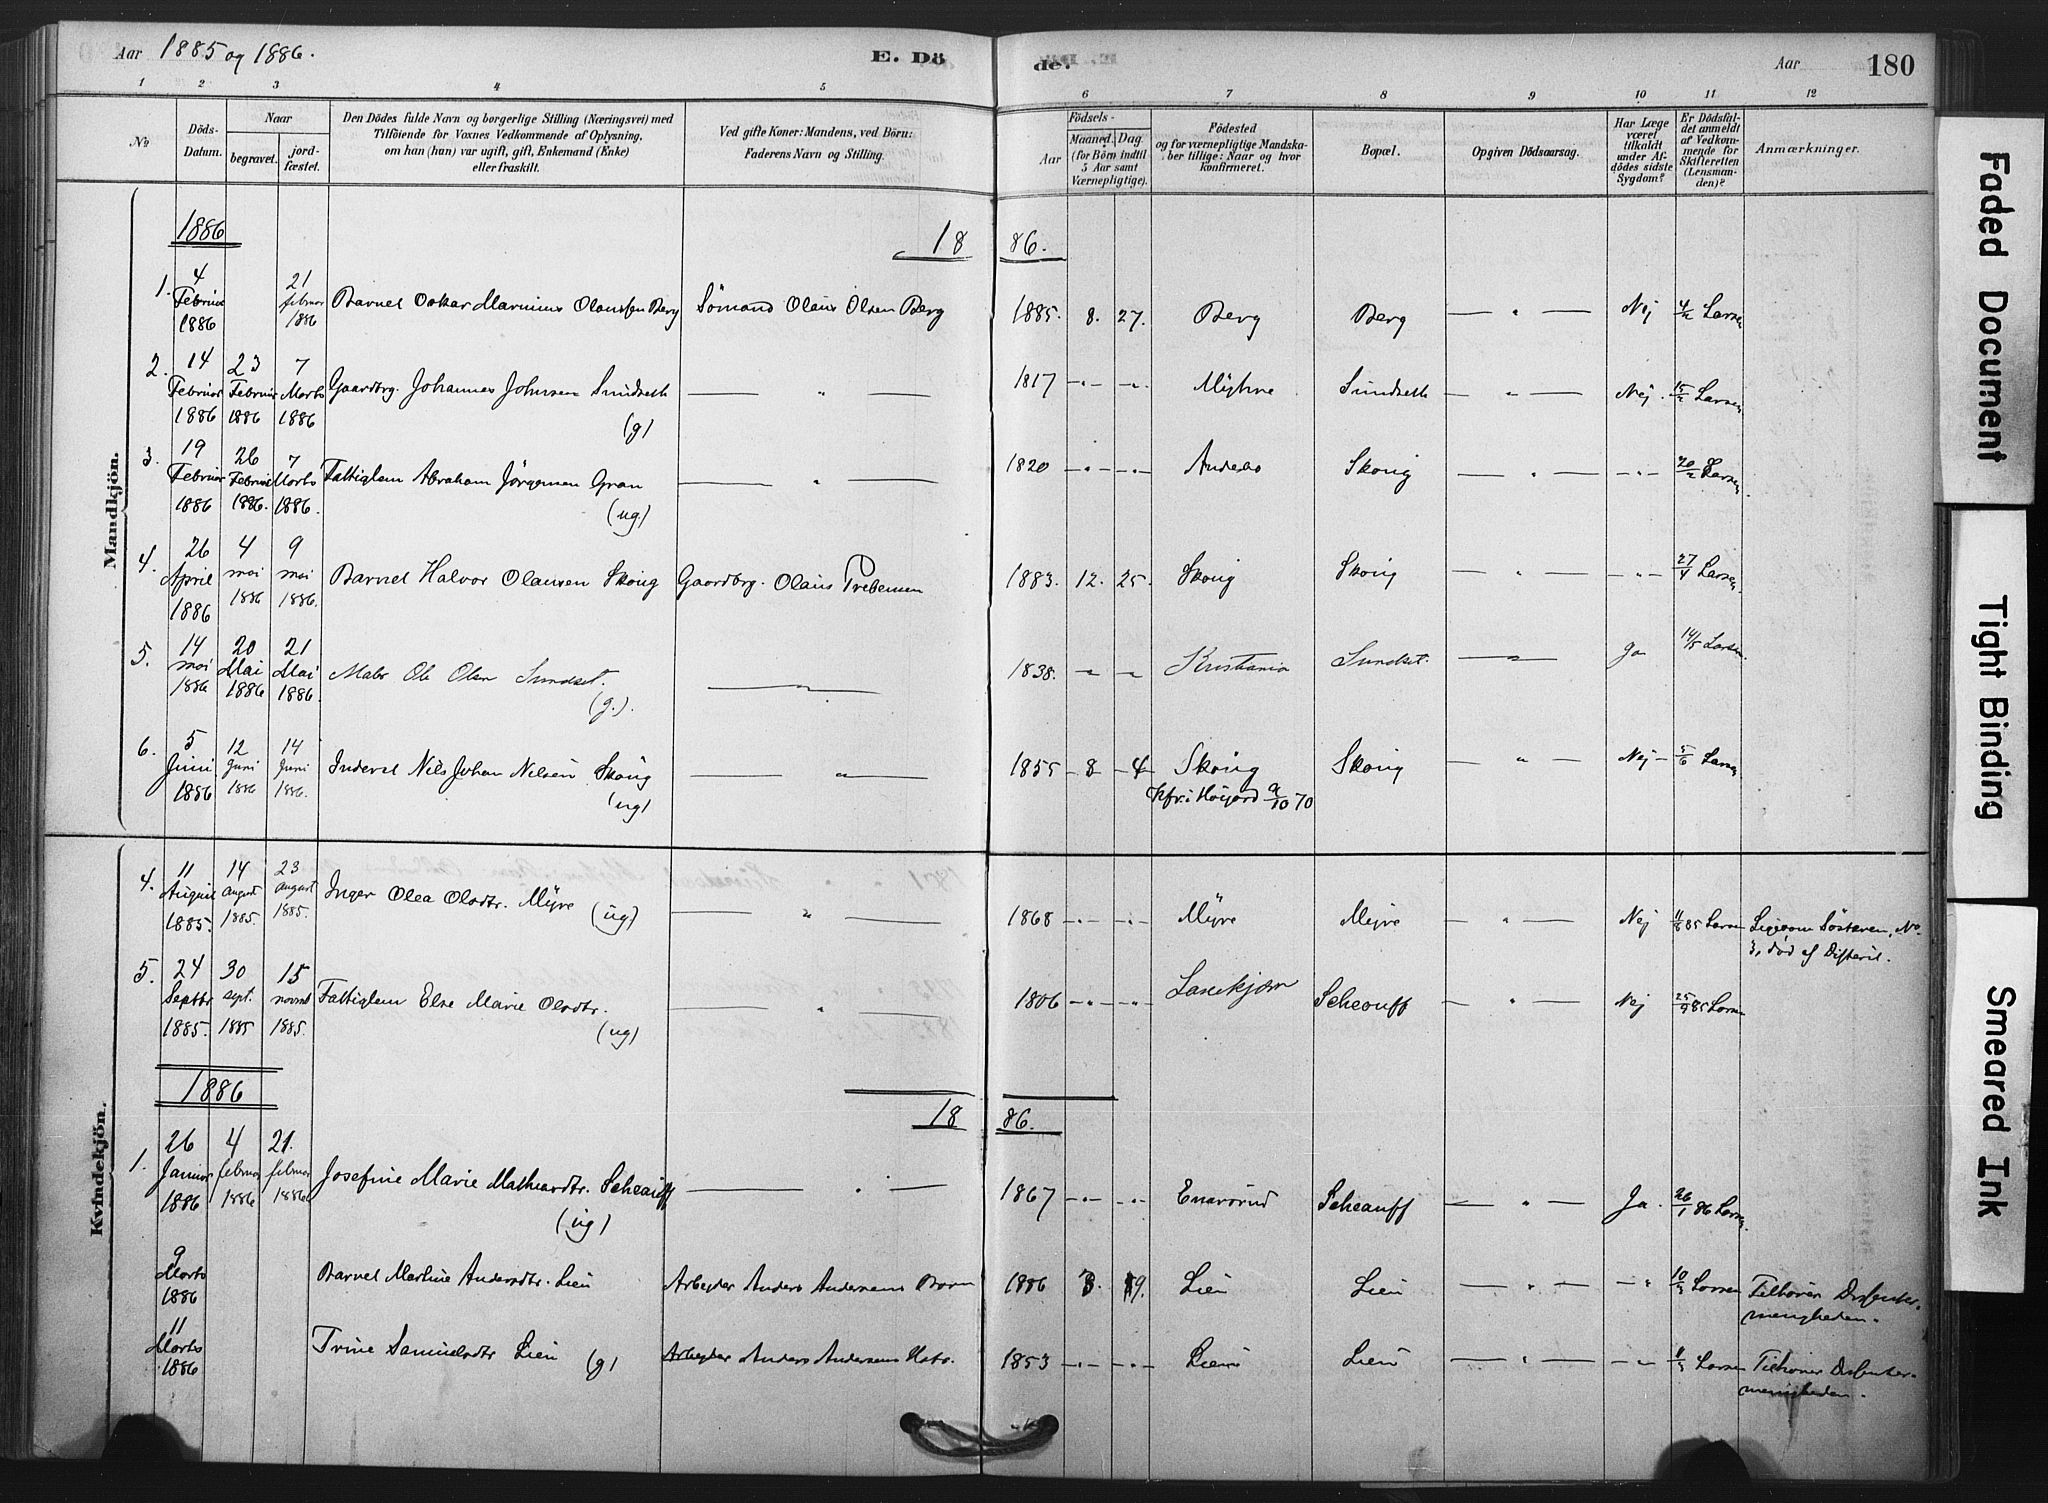 Aar 1885 og 1886.
E. Dö
de.
Aar
180
1 2 3 4 5
6 7 8 9 10 11 12
№
Döds-Datum.
Naar
begravet.
jord-fæstet.
Den Dödes fulde Navn og borgerlige Stilling (Næringsvei) med
Tilföiende for Voxnes Vedkommende af Oplysning,
om han (hun) var ugift, gift, Enkemand (Enke)
eller fraskilt.
Ved gifte Koner: Mandens, ved Börn:
Faderens Navn og Stilling.
Födsels-
Aar
Maaned. Dag.
(for Börn indtil
5 Aar samt
Værnepligtige).
Födested
og for værnepligtige Mandska-
ber tillige: Naar og hvor
konfirmeret.
Bopæl.
Opgiven Dödsaarsag.
Har Læge
været
tilkaldt
under Af-
dödes sidste
Sygdom?
Er Dödsfal-
det anmeldt
af Vedkom-
mende for
Skifteretten
(Lensman-
den)?
Anmærkninger.
Mandkjön.
1886
18 86.
1. 4 Februar 1886 21 februar 1886 Barnet Oskar Marinius Olaussen Berg Sömand Olaus Olsen Berg 1885. 8. 27. Berg Berg — " — Nej 4/2 Larsen
2. 14 Februar 1886 23 Februar 1886 7 Marts 1886 Gaardbrg. Johannes Johnsen Sundseth (g) — " — 1817 -"- -"- Myhre Sundseth — " — Nej. 15/2 Larsen
3. 19 Februar 1886 26 Februar 1886. 7 Marts 1886. Fattiglem Abraham Jörgensen Gran (ug) — " — 1820 -"- -"- Andebo Skoug — " — -"- 20/2 Larsen.
4. 26 April 1886 4 mai 1886 9 mai 1886. Barnet Halvor Olausen Skoug Gaardbrg. Olaus Prebensen 1883. 12. 25. Skoug Skoug — " — -"- 27/4 Larsen.
5. 14 mai 1886 20 Mai 1886 21 Mai 1886. Ole Olsen Sundset. (g.). — " — 1838. " " Kristiania Sundset. — " — Ja 14/5 Larsen.
6. 5 Juni 1886 12 Juni 1886 14 Juni 1886. Inderst Nils Johan Nilsen Skoug (ug) — " — 1855 - 8 - 4 Skoug Kfr. i Höijord 9/10 70 Skoug — " — Nej - 5/6 Larsen
Kvindekjön.
4. 11 August 1885. 14 august 1885. 23 august 1885. Inger Olea Olsdtr. Myre (ug) — " — 1868 -"- -"- Myre Myre — " — Nej 11/8 85 Larsen Ligesom Søsteren, No
3, död af Difterit.
5. 24 Septbr 1885. 30 sept. 1885 15 novmb 1885. Fattiglem Else Marie Olsdtr. (ug) — " — 1806 -"- -"- Scheauff — " — Nej 25/9 85 Larsen
1886
18 86.
1. 26 Januar 1886 4 februar 1886 21. februar 1886 Josefine Marie Mathiasdtr. Scheauff (ug) — " — 1867 -"- -"- Scheauff — " — Ja. 26/1 86 Larsen.
9 Marts 1886 Barnet Martine Andersdtr. Lien Arbejder Anders Andersens Barn 1886 3. 9. Lien Lien — " — -"- 10/3 Larsen Tilhörer Dissenter-
menigheden.
11 Marts 1886 Trine Samuelsdtr Lien (g) Arbejder Anders Andersens Hstr. 1853 -"- -"- Lien Lien — " — -"- 11/3 Larsen Tilhörer Dissenter-
menigheden.
Faded Document
Tight Binding
Smeared Ink